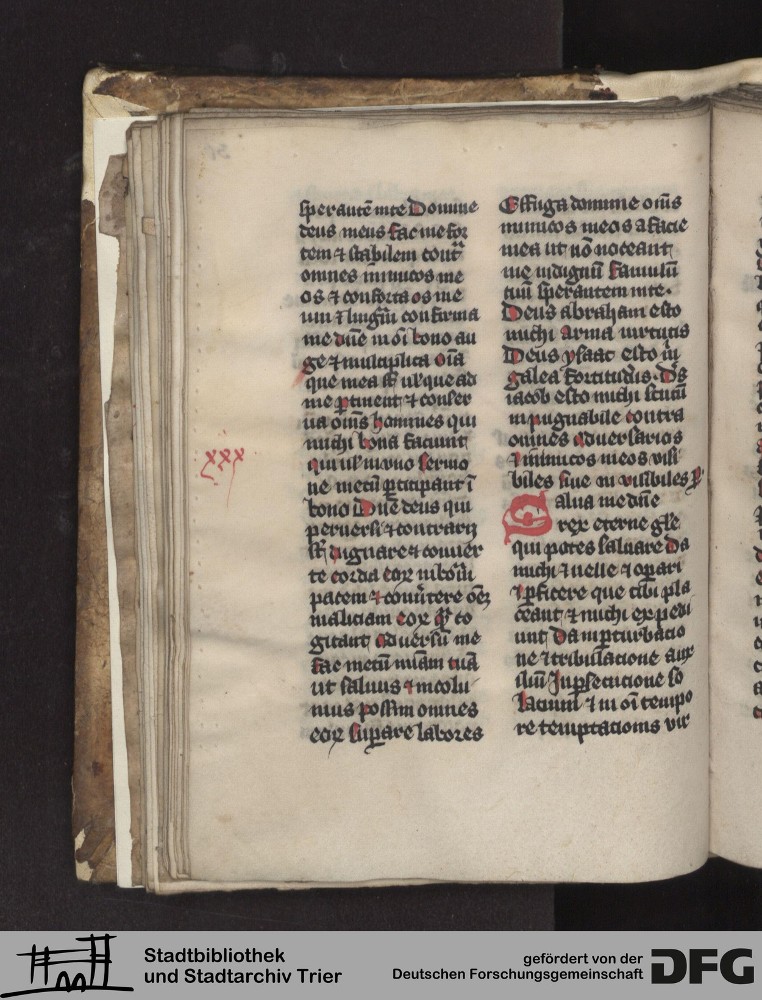 sperantē in te Domine
deus meus fac me for
tem ⁊ stabilem cont̄
omnes inimicos me
os ⁊ conforta os me
um ⁊ linguā confirma
me dn̄e in oī bono au
ge ⁊ multiplica oīa
que mea sunt usque ad
me ꝑtinent ⁊ conser
ua om̄s homines qui
michi bona faciunt
xxx
qui in uno sermo
ne mecū ꝑticipant ī
bono Dn̄e deus qui
peruersi ⁊ contrarij
sūt dignare ⁊ conuer
te corda eoꝝ
pacem ⁊ conūtere
maliciam eoꝝ co
gitant aduersū me
fac mecū mīam tuā
ut saluus ⁊ incolu
mis possim omnes
eoꝝ suꝑare labores
Effuga domine om̄s
inimicos meos a facie
mea ut nō noceant
me indignū famulū
tuū sperantem in te.
Deus abraham esto
michi arma uirtutis
Deus ysaac esto m̄
galea fortitudīs. ds̄
iacob esto michi scutū
inpugnabile contra
omnes aduersarios
⁊ inimicos meos visi
biles siue in visibiles
Salua me dn̄e
rex eterne gl̄e
qui potes saluare da
michi ⁊ uelle ⁊ oꝑari
⁊ ꝑficere que tibi pla
ceant ⁊ michi expedi
unt Da in ꝑturbacio
ne ⁊ tribulacione aux
iliū In ꝑsecucione so
laciuni ⁊ in oī tempo
re temptacionis vir
Stadtbibliothek
und Stadtarchiv Trier
gefördert von der
Deutschen Forschungsgemeinschaft
DFG